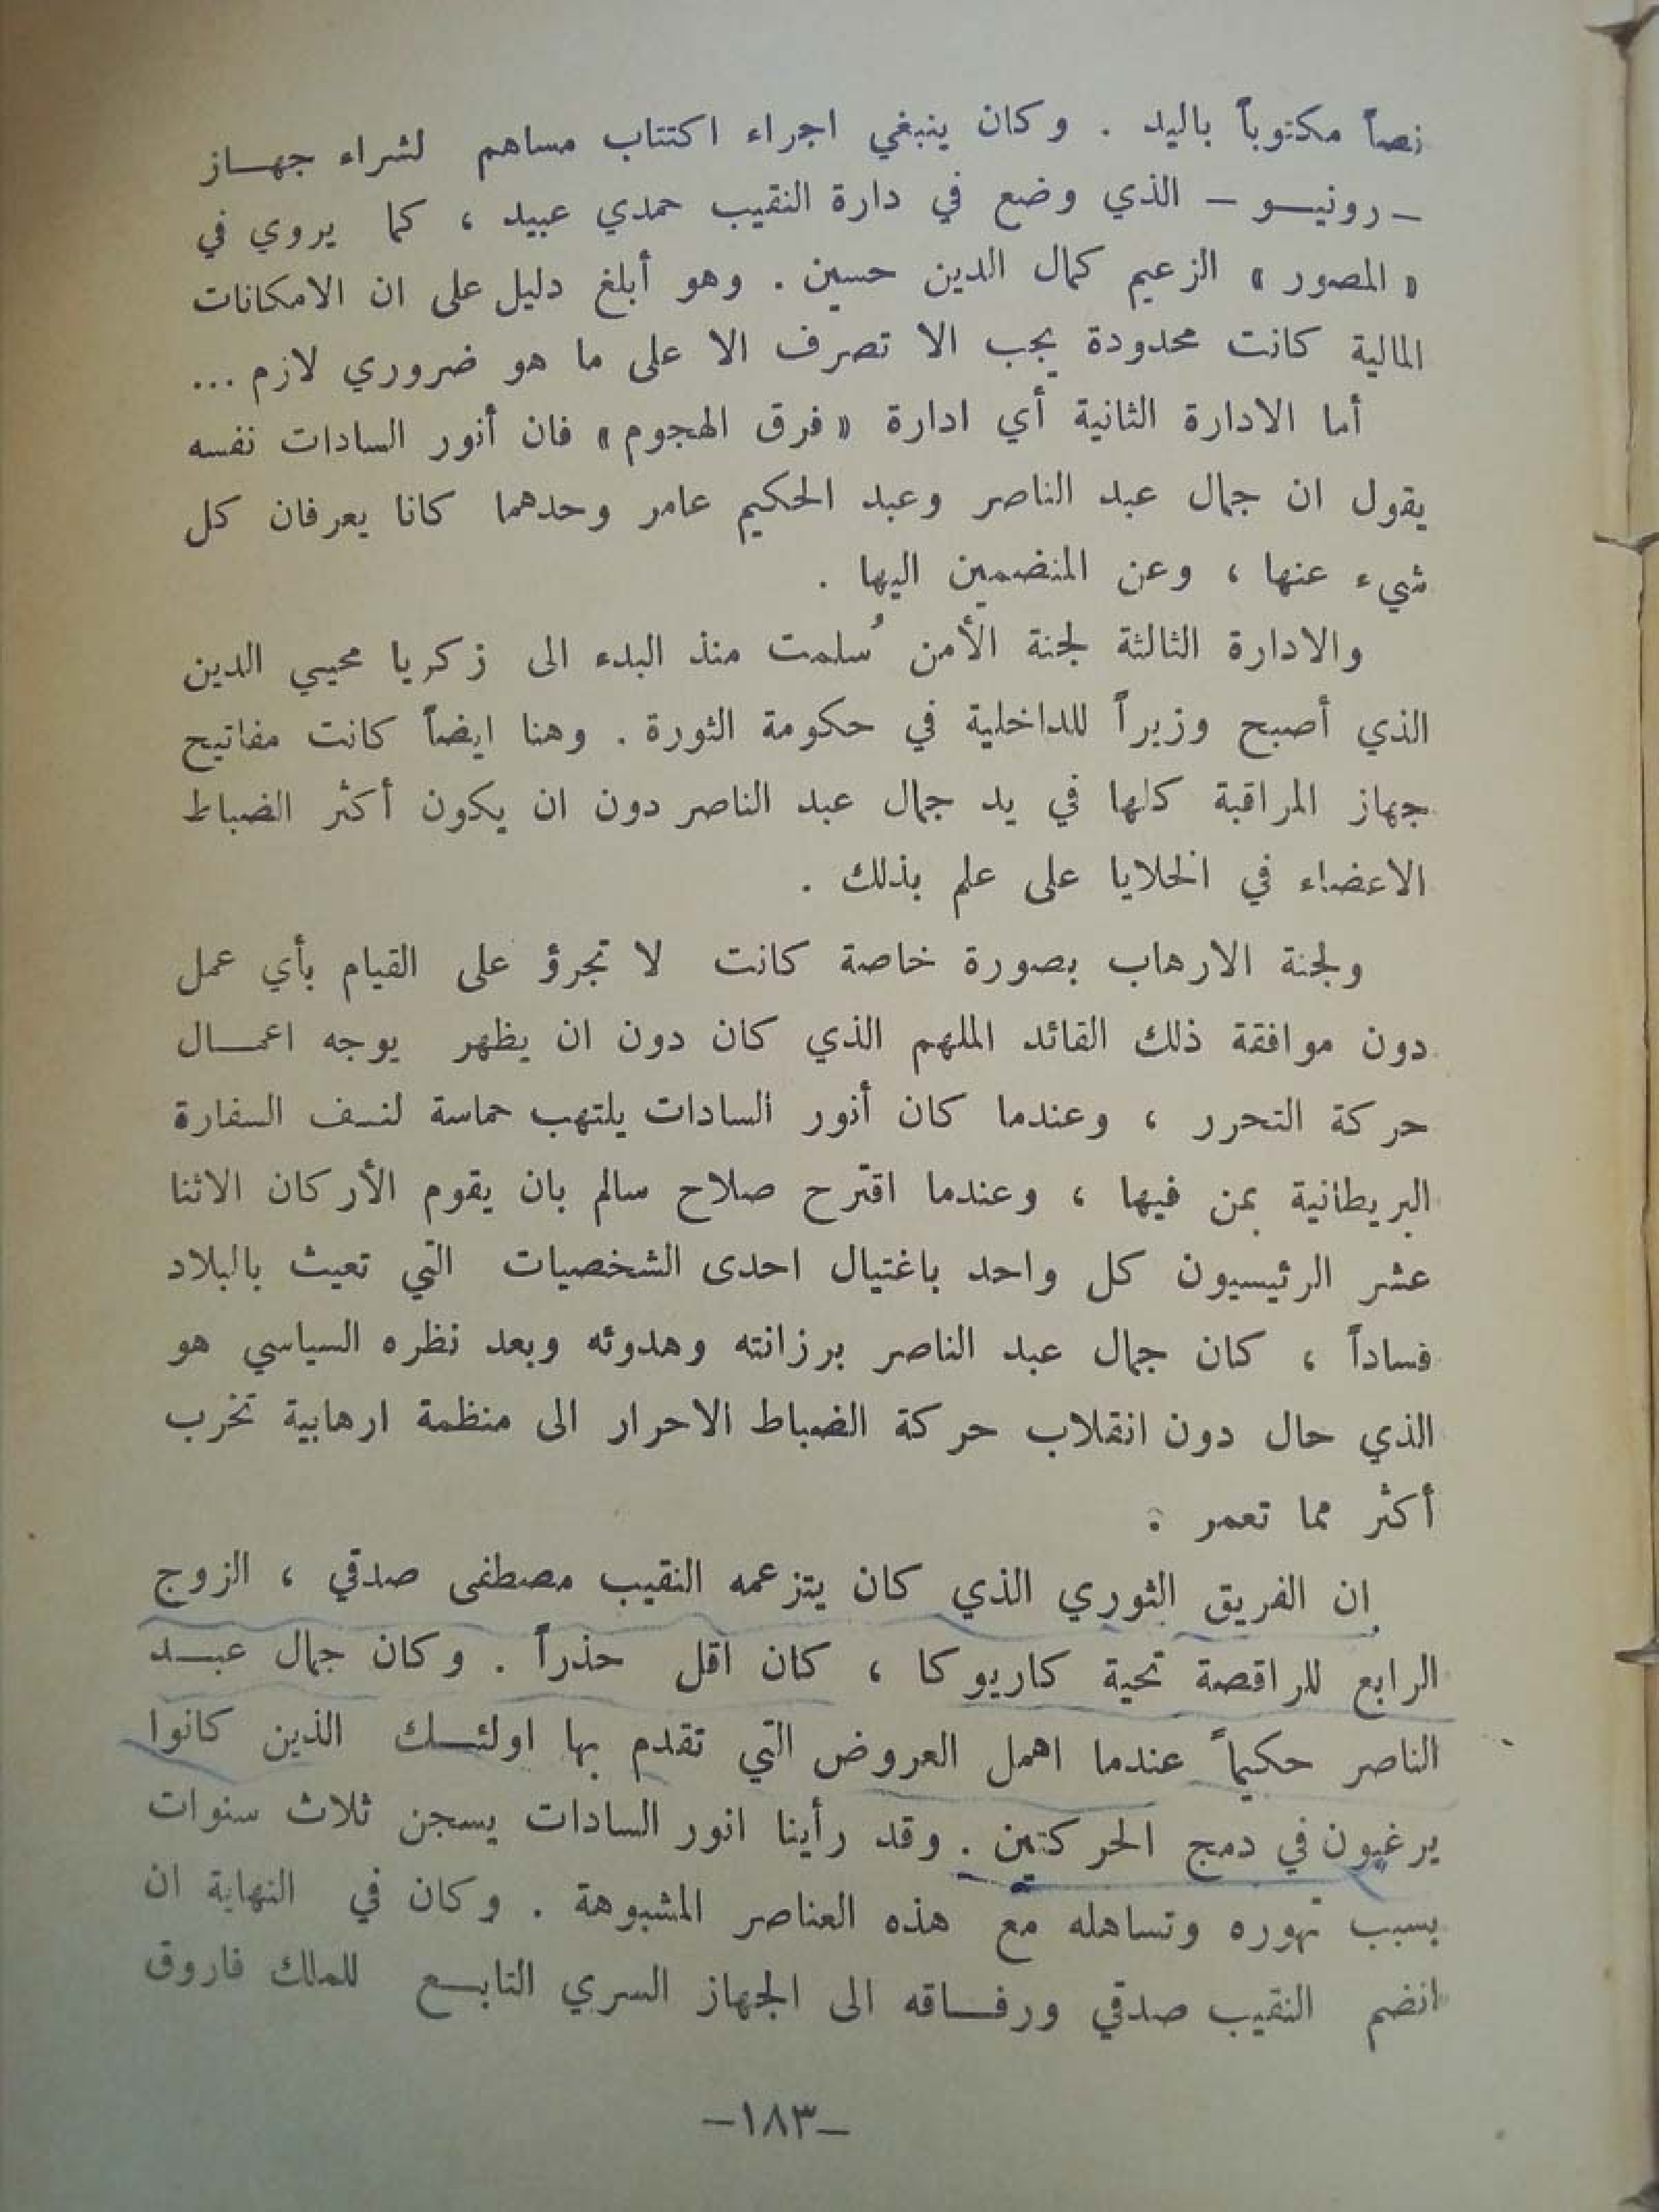 نصاً مكتوباً باليد . وكان ينبغي اجراء اكتتاب مساهم لشراء جهـــاز
ـ رونيـــو ـ الذي وضع في دارة النقيب حمدي عبيد ، كما يروي في
« المصور » الزعيم كمال الدين حسين . وهو أبلغ دليل على ان الامكانات
المالية كانت محدودة يجب الا تصرف الا على ما هو ضروري لازم ...
أما الادارة الثانية أي ادارة « فرق الهجوم » فان أنور السادات نفسه
يقول ان جمال عبد الناصر وعبد الحكيم عامر وحدهما كانا يعرفان كل
شيء عنها ، وعن المنضمين اليها .
والادارة الثالثة لجنة الأمن سُلمت منذ البدء الى زكريا محيي الدين
الذي أصبح وزيراً للداخلية في حكومة الثورة . وهنا ايضاً كانت مفاتيح
جهاز المراقبة كلها في يد جمال عبد الناصر دون ان يكون أكثر الضباط
الاعضاء في الخلايا على علم بذلك .
ولجنة الارهاب بصورة خاصة كانت لا تجرؤ على القيام بأي عمل
دون موافقة ذلك القائد الملهم الذي كان دون ان يظهر يوجه اعمـــال
حركة التحرر ، وعندما كان أنور السادات يلتهب حماسة لنسف السفارة
البريطانية بمن فيها ، وعندما اقترح صلاح سالم بان يقوم الأركان الاثنا
عشر الرئيسيون كل واحد باغتيال احدى الشخصيات التي تعيث بالبلاد
فساداً ، كان جمال عبد الناصر برزانته وهدوئه وبعد نظره السياسي هو
الذي حال دون انقلاب حركة الضباط الاحرار الى منظمة ارهابية تخرب
أكثر مما تعمر .
ان الفريق الثوري الذي كان يتزعمه النقيب مصطفى صدقي ، الزوج
الرابع للراقصة تحية كاريوكا ، كان اقل حذراً . وكان جمال عبـــد
الناصر حكيماً عندما اهمل العروض التي تقدم بها اولئـــك الذين كانوا
يرغبون في دمج الحركتين . وقد رأينا انور السادات يسجن ثلاث سنوات
بسبب تهوره وتساهله مع هذه العناصر المشبوهة . وكان في النهاية ان
انضم النقيب صدقي ورفـــاقه الى الجهاز السري التابـــع للملك فاروق
ـ١٨٣ـ